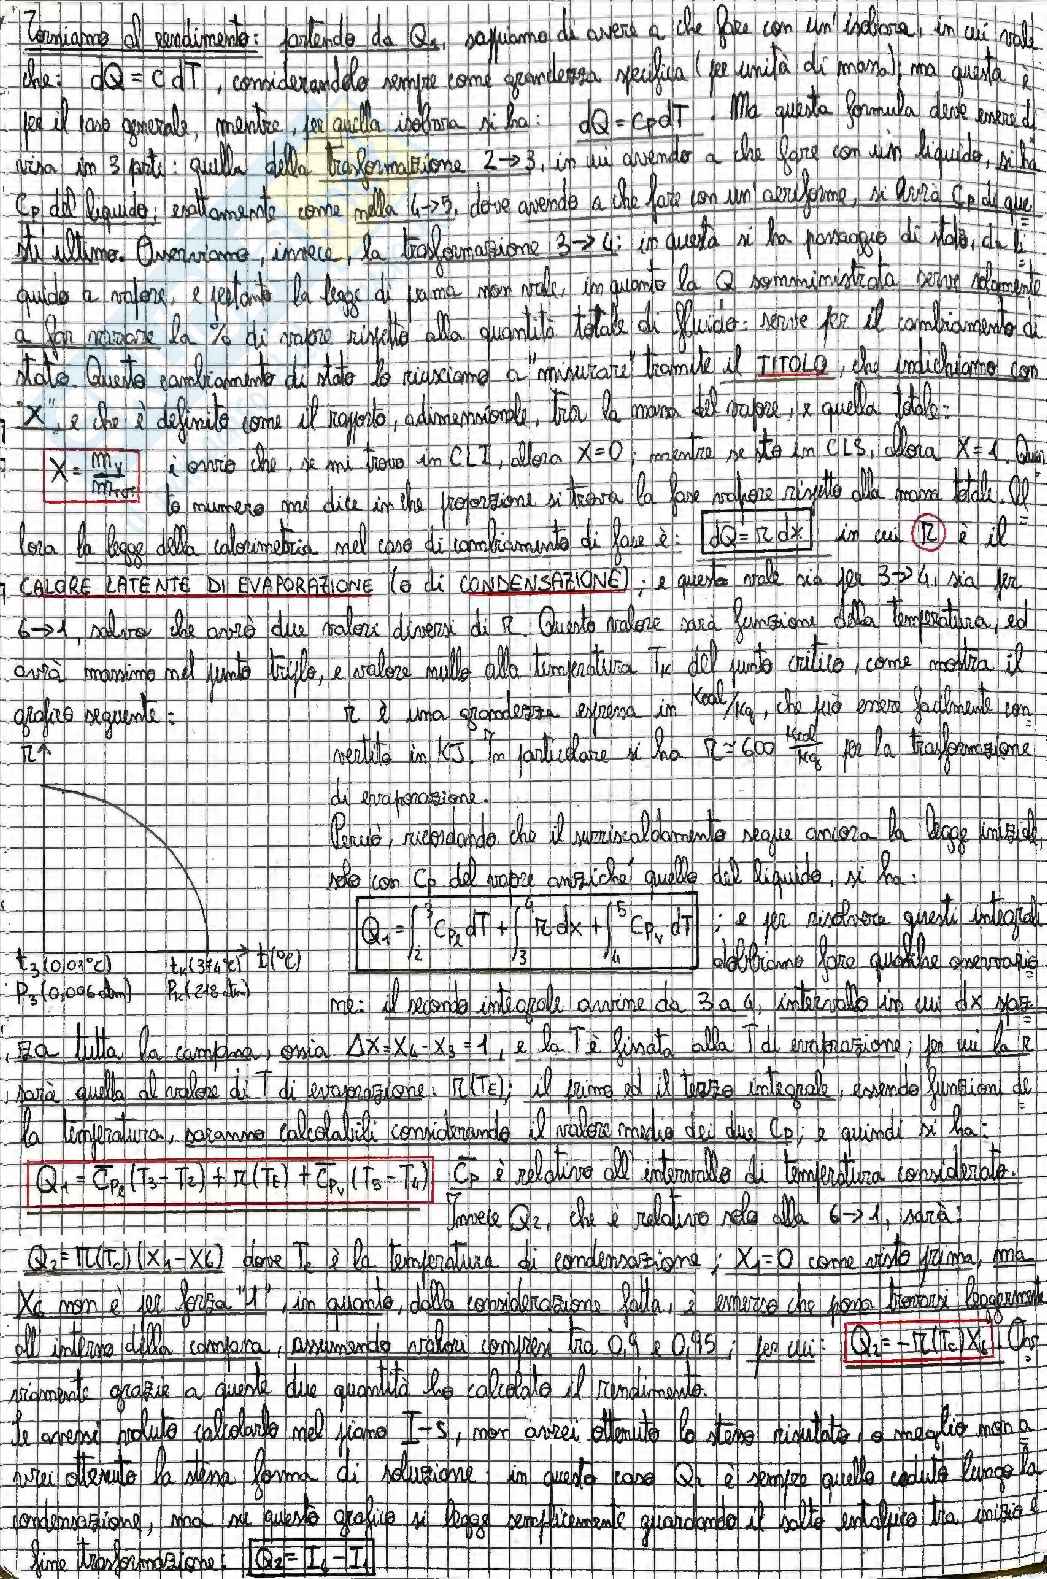 Torniamo al rendimento: partendo da Q1, sappiamo di avere a che fare con un'isobara, in cui vale
che: dQ = c dT, considerandolo sempre come grandezza specifica (per unità di massa); ma questa è
per il caso generale, mentre, per quella isobara si ha: dQ = CpdT. Ma questa formula deve essere di
visa in 3 parti: quella della trasformazione 2→3, in cui avendo a che fare con un liquido, si ha
Cp del liquido, esattamente come nella 4→5, dove avendo a che fare con un aeriforme, si avrà Cp di que
sti ultimo. Osserviamo, invece, la trasformazione 3→4: in questa si ha passaggio di stato, da li
quido a vapore, e pertanto la legge di prima non vale, in quanto la Q somministrata serve solamente
a far variare la % di vapore rispetto alla quantità totale di fluido: serve per il cambiamento di
stato. Questo cambiamento di stato lo riusciamo a "misurare" tramite il TITOLO, che indichiamo con
"X", e che è definito come il rapporto, adimensionale, tra la massa del vapore, e quella totale:
X = mv/mTOT è ovvio che, se mi trovo in CLI, allora X=0; mentre se sto in CLS, allora X=1. Ques
to numero mi dice in che proporzione si trova la fase vapore rispetto alla massa totale. Al
lora la legge della calorimetria nel caso di cambiamento di fase è: dQ = r dx in cui r è il
CALORE LATENTE DI EVAPORAZIONE (o di CONDENSAZIONE); e questo vale sia per 3→4, sia per
6→1, salvo che avrò due valori diversi di r. Questo valore sarà funzione della temperatura, ed
avrà massimo nel punto triplo, e valore nullo alla temperatura Tk del punto critico, come mostra il
grafico seguente: r è una grandezza espressa in Kcal/Kg, che può essere facilmente con
r
vertita in KJ. In particolare si ha r ≃ 600 Kcal/Kg per la trasformazione
di evaporazione.
Perciò, ricordando che il surriscaldamento segue ancora la legge iniziale,
solo con Cp del vapore anziché quello del liquido, si ha:
Q1 = ∫₂³ Cpl dT + ∫₃⁴ r dx + ∫₄⁵ Cpv dT ; e per risolvere questi integrali
t3 (0,01°C) tk (374°C) t(°C) dobbiamo fare qualche osservazio
P3 (0,006 atm) Pk (218 atm)
ne: il secondo integrale avviene da 3 a 4, intervallo in cui dx spaz
za tutta la campana, ossia Δx = X4 - X3 = 1, e la T è fissata alla T di evaporazione; per cui la r
sarà quella al valore di T di evaporazione: r(TE); il primo ed il terzo integrale, essendo funzioni del
la temperatura, saranno calcolabili considerando il valore medio dei due Cp; e quindi si ha:
Q1 = C̅pl (T3 - T2) + r(TE) + C̅pv (T5 - T4) C̅p è relativo all'intervallo di temperatura considerato.
Invece Q2, che è relativo solo alla 6→1, sarà:
Q2 = r(Tc)(X1 - X6) dove Tc è la temperatura di condensazione; X1=0 come visto prima, ma
X6 non è per forza "1", in quanto, dalla considerazione fatta, è emerso che possa trovarsi leggermente
all'interno della campana, assumendo valori compresi tra 0,9 e 0,95; per cui: Q2 = -r(Tc)X6. Ov
viamente grazie a queste due quantità ho calcolato il rendimento.
Se avessi voluto calcolarlo nel piano I-S, non avrei ottenuto lo stesso risultato, o meglio non a
vrei ottenuto la stessa forma di soluzione: in questo caso Q2 è sempre quello ceduto lungo la
condensazione, ma su questo grafico si legge semplicemente guardando il salto entalpico tra inizio e
fine trasformazione: Q2 = I6 - I1